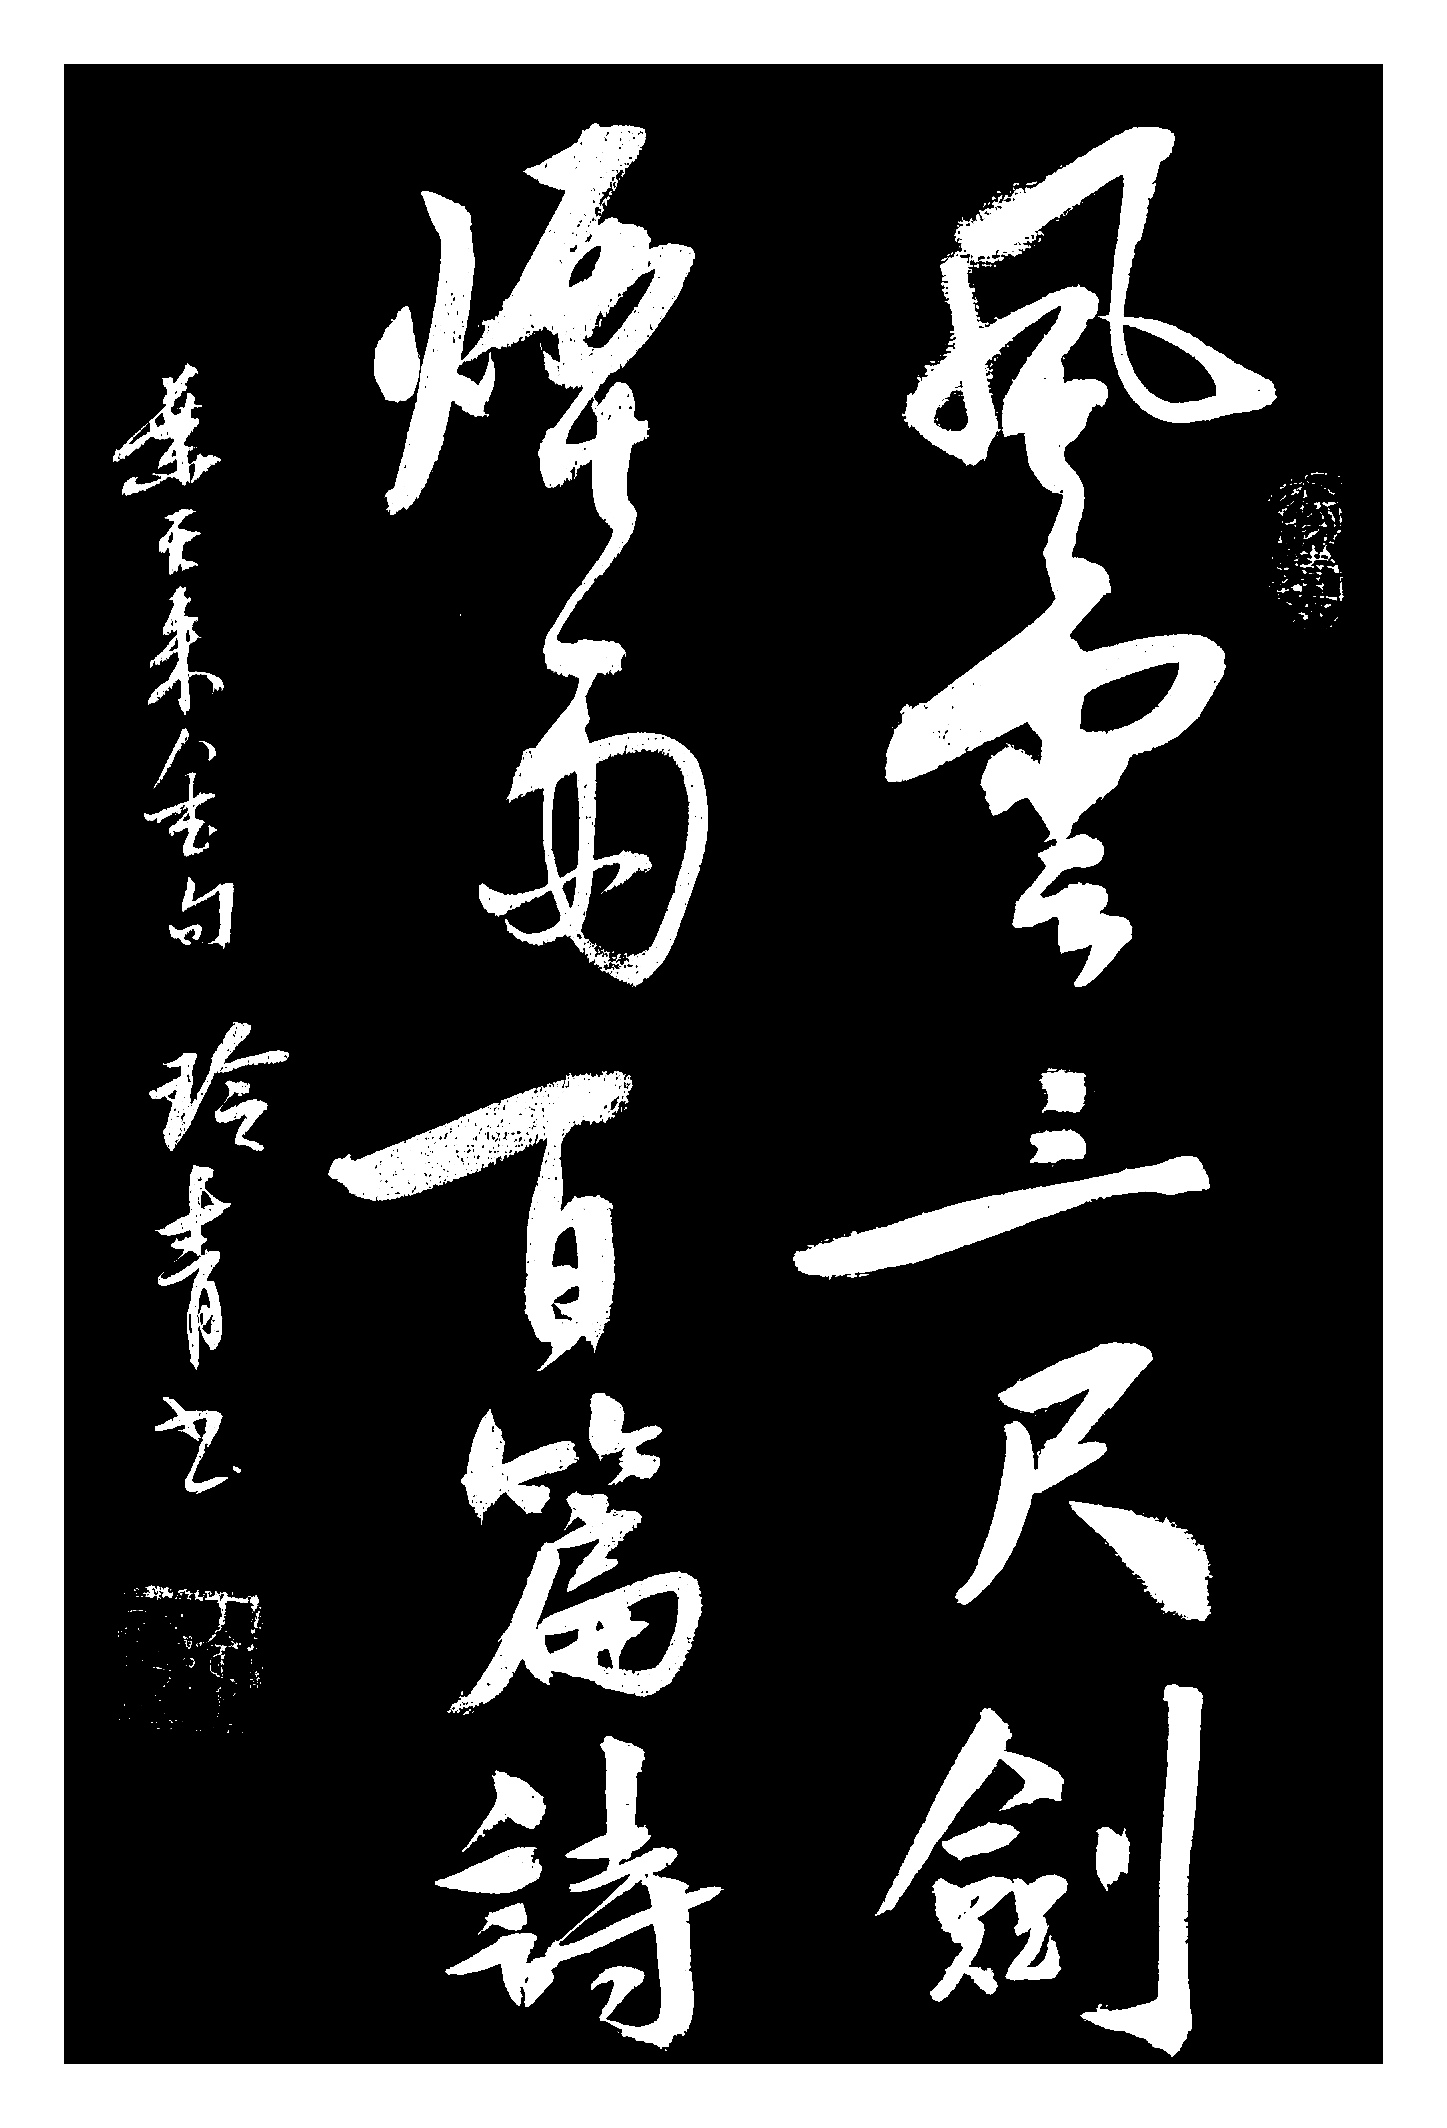 風雲三尺劍
煙雨百篇詩
葉玉來金句 玲青书